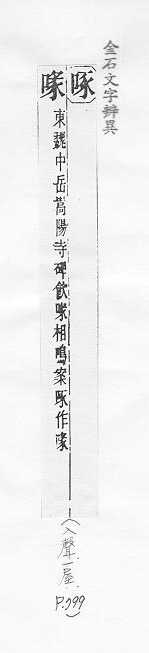 金石文字辨異
啄
喙
東魏中岳嵩陽寺碑飲喙相鳴案啄作喙
(入聲一屋
P.799)